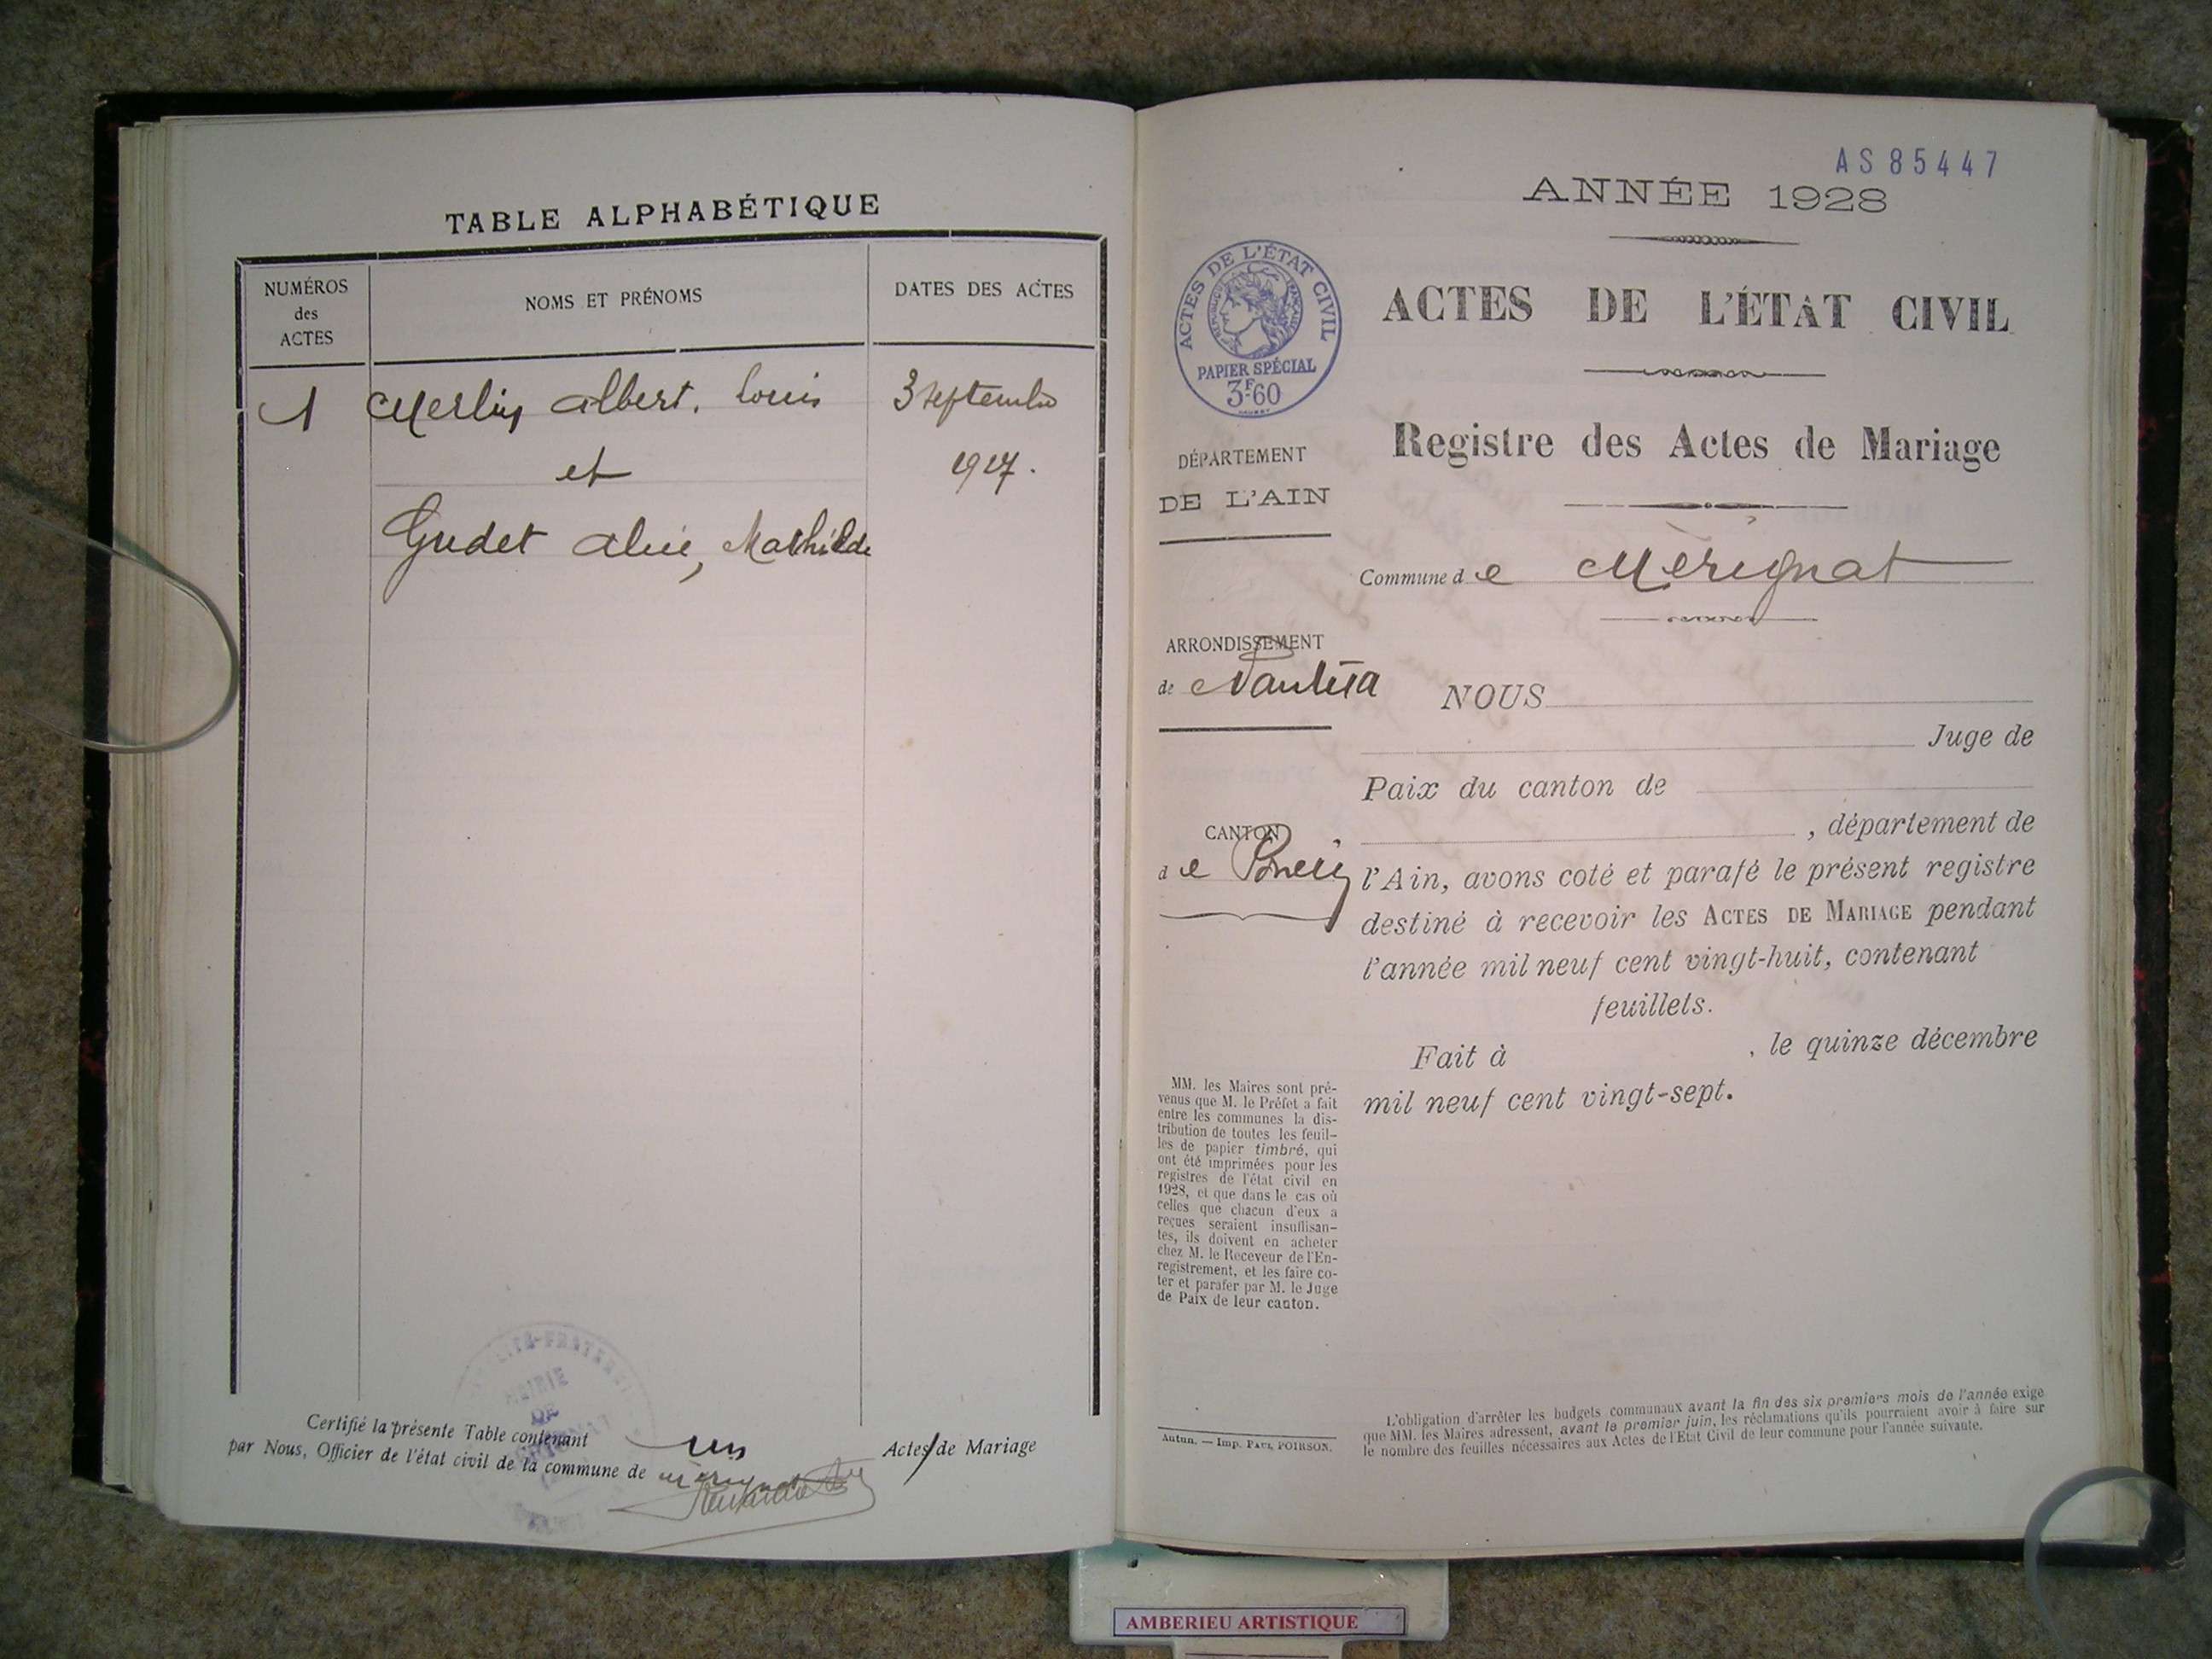 TABLE ALPHABÉTIQUE
NUMÉROS
des
ACTES
NOMS ET PRÉNOMS
DATES DES ACTES
1 Merlin Albert, Louis 3 Septembre
et 1927.
Gudet Alice, Mathilde
MAIRIE
DE
Certifié la présente Table contenant un Actes de Mariage
par Nous, Officier de l'état civil de la commune de Mérignat
AS85447
ANNÉE 1928
ACTES DE L'ÉTAT CIVIL
RÉPUBLIQUE FRANÇAISE
PAPIER SPÉCIAL
3F60
ACTES DE L'ÉTAT CIVIL
Registre des Actes de Mariage
DÉPARTEMENT
DE L'AIN
Commune de Mérignat
ARRONDISSEMENT
de Nantua
CANTON
de Poncin
NOUS
Juge de
Paix du canton de
, département de
l'Ain, avons coté et parafé le présent registre
destiné à recevoir les ACTES DE MARIAGE pendant
l'année mil neuf cent vingt-huit, contenant
feuillets.
Fait à , le quinze décembre
mil neuf cent vingt-sept.
MM. les Maires sont pré-
venus que M. le Préfet a fait
entre les communes la dis-
tribution de toutes les feuil-
les de papier timbré, qui
ont été imprimées pour les
registres de l'état civil en
1928, et que dans le cas où
celles que chacun d'eux a
reçues seraient insuffisan-
tes, ils doivent en acheter
chez M. le Receveur de l'En-
registrement, et les faire co-
ter et parafer par M. le Juge
de Paix de leur canton.
Autun. — Imp. PAUL POIRSON.
L'obligation d'arrêter les budgets communaux avant la fin des six premiers mois de l'année exige
que MM. les Maires adressent, avant le premier juin, les réclamations qu'ils pourraient avoir à faire sur
le nombre des feuilles nécessaires aux Actes de l'Etat Civil de leur commune pour l'année suivante.
AMBERIEU ARTISTIQUE